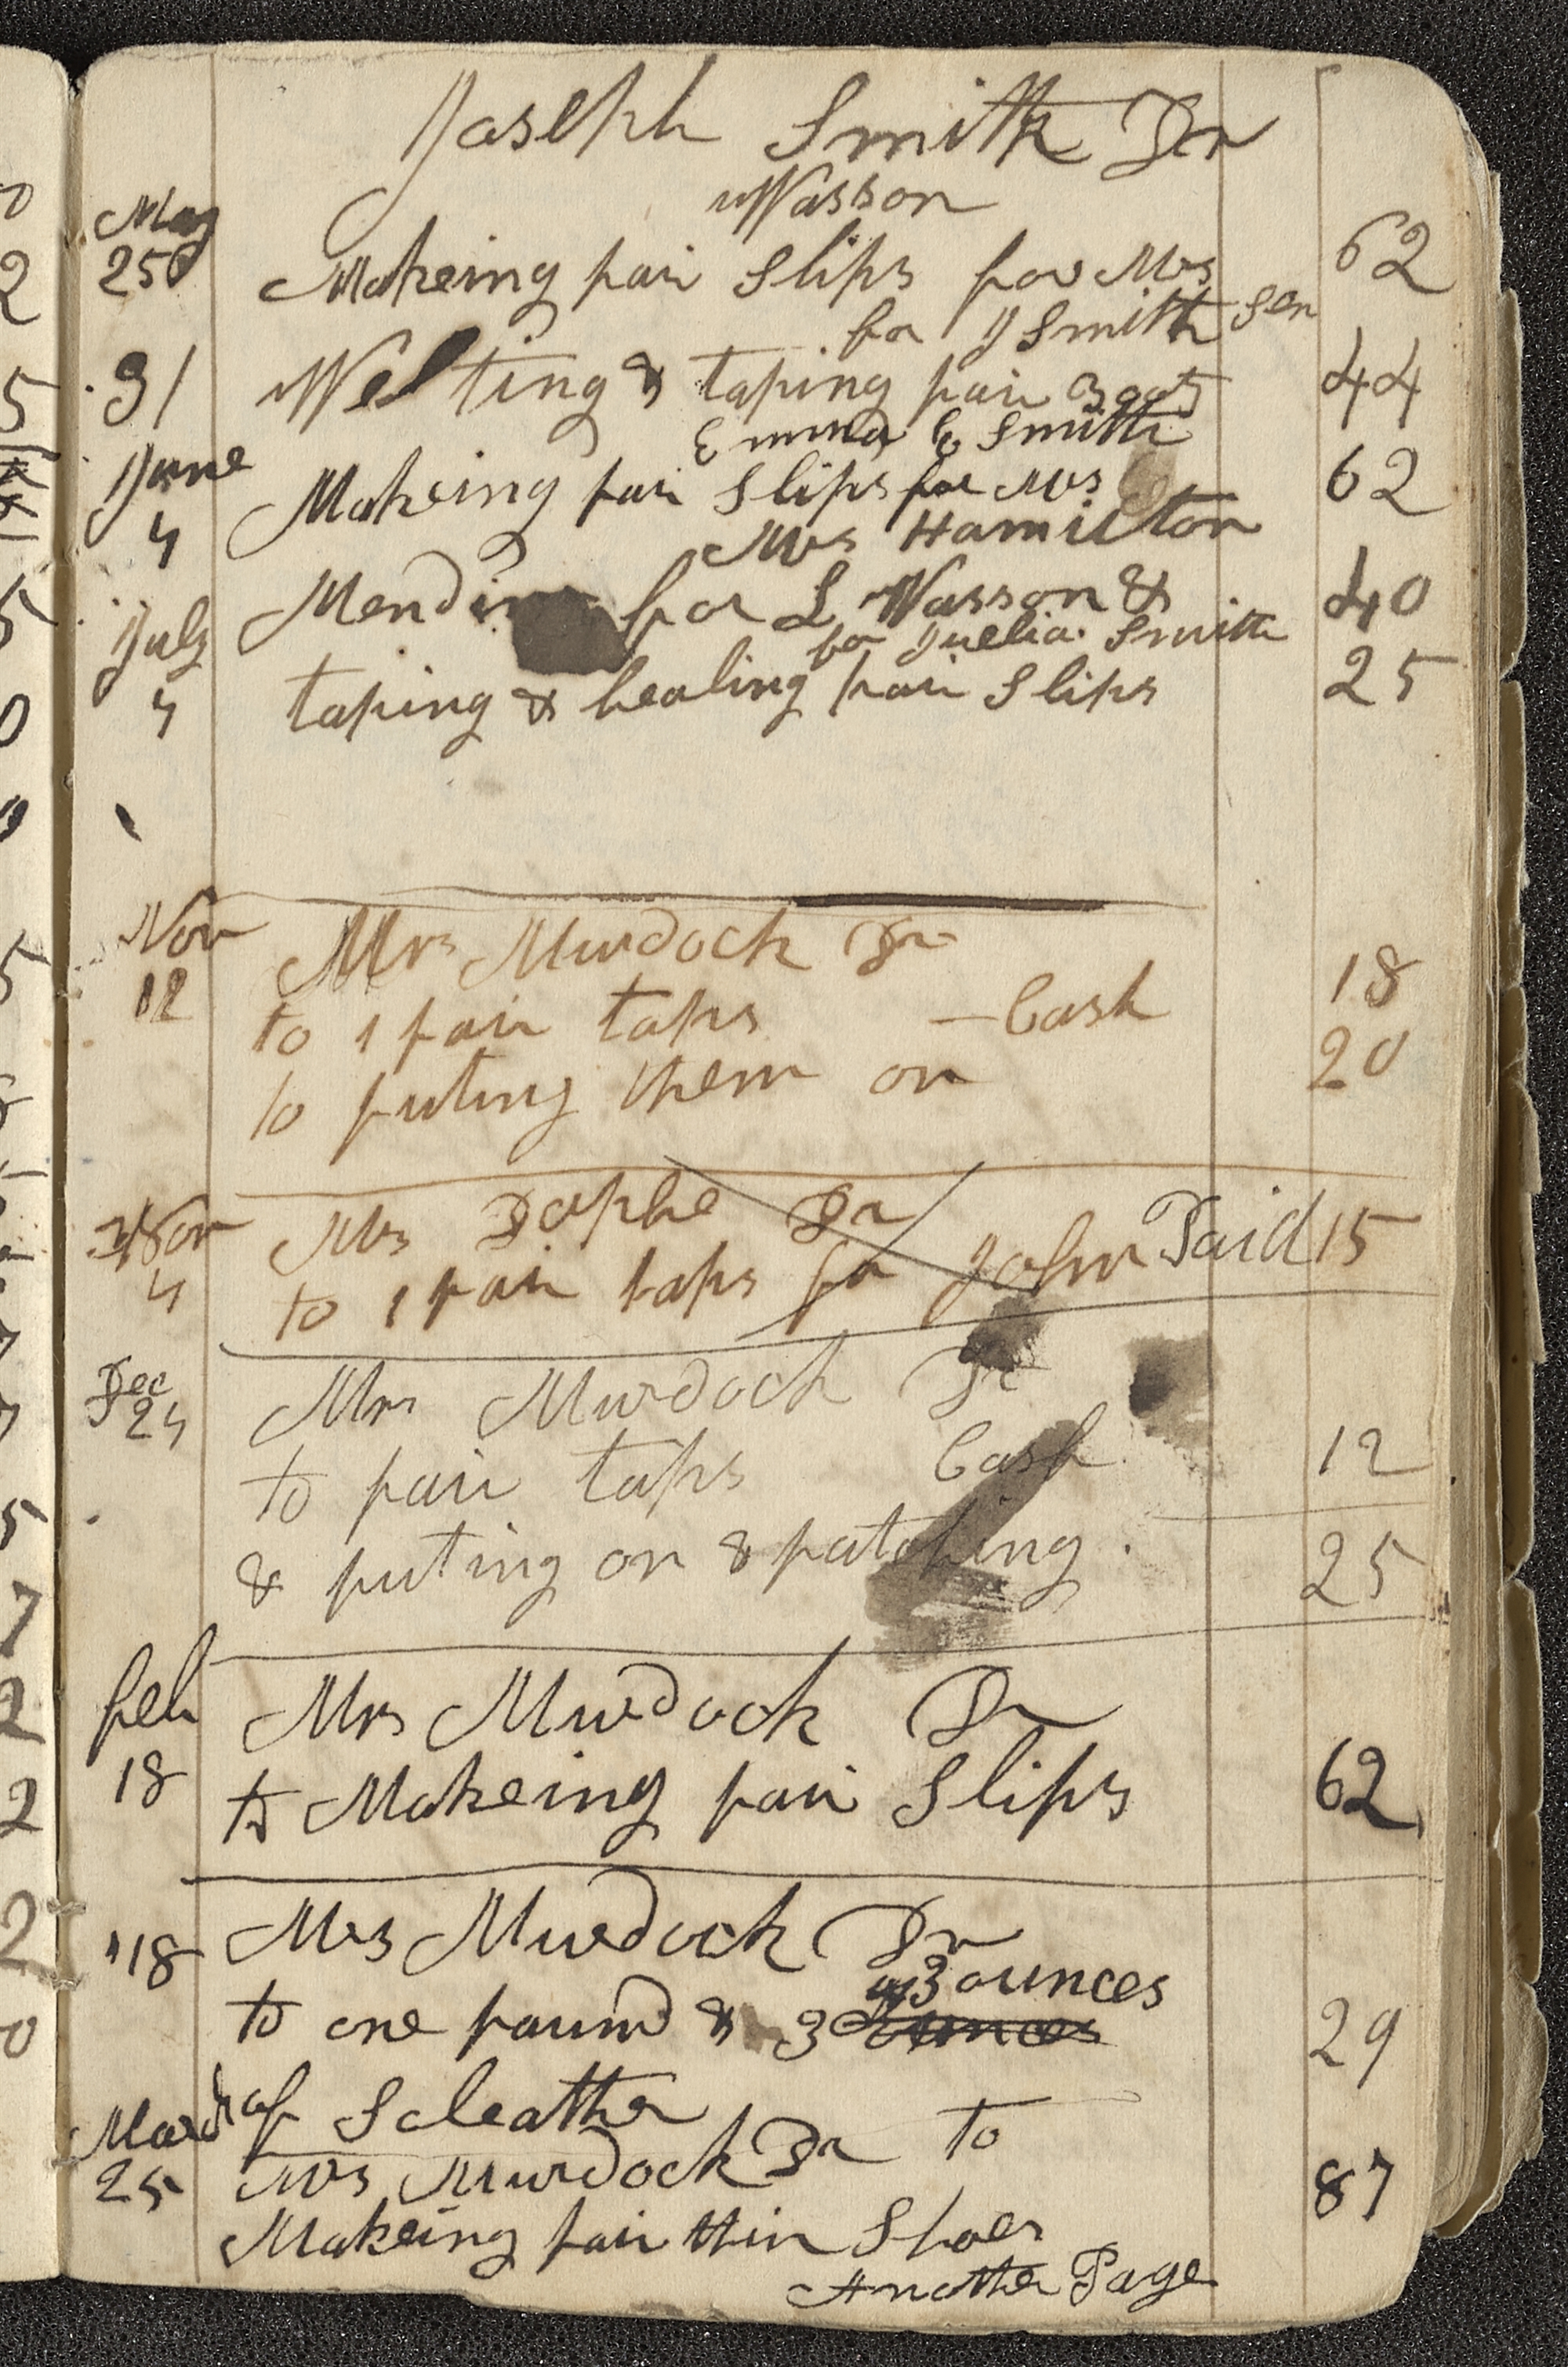 Joseph Smith Dr
Wasson
May
25 Makeing pair Slips for Mrs 62
for J Smith Sen
31 Welting & taping pair Boots 44
Emma & Smith
June
4 Makeing pair Slips for Mrs 62
Mrs Hamilton
Mending for L Wasson & 40
July for Juelia Smith
4 taping & healing pair Slips 25
Nov Mrs Murdock Dr
12 to 1 pair taps — Cash 18
to puting them on 20
Nov Mrs Dr
4 to 1 pair taps for John Paid 15
Dec
24 Mrs Murdock Dr
to pair taps Cash 12
& puting on & patching 25
feb Mrs Murdock Dr
18 to Makeing pair Slips 62
"18 Mrs Murdock Dr
3 ounces
to one pound & 3 ounces 29
of Soleather
March
25 Mrs Murdock Dr to
Makeing pair thin Shoes 87
Another Page